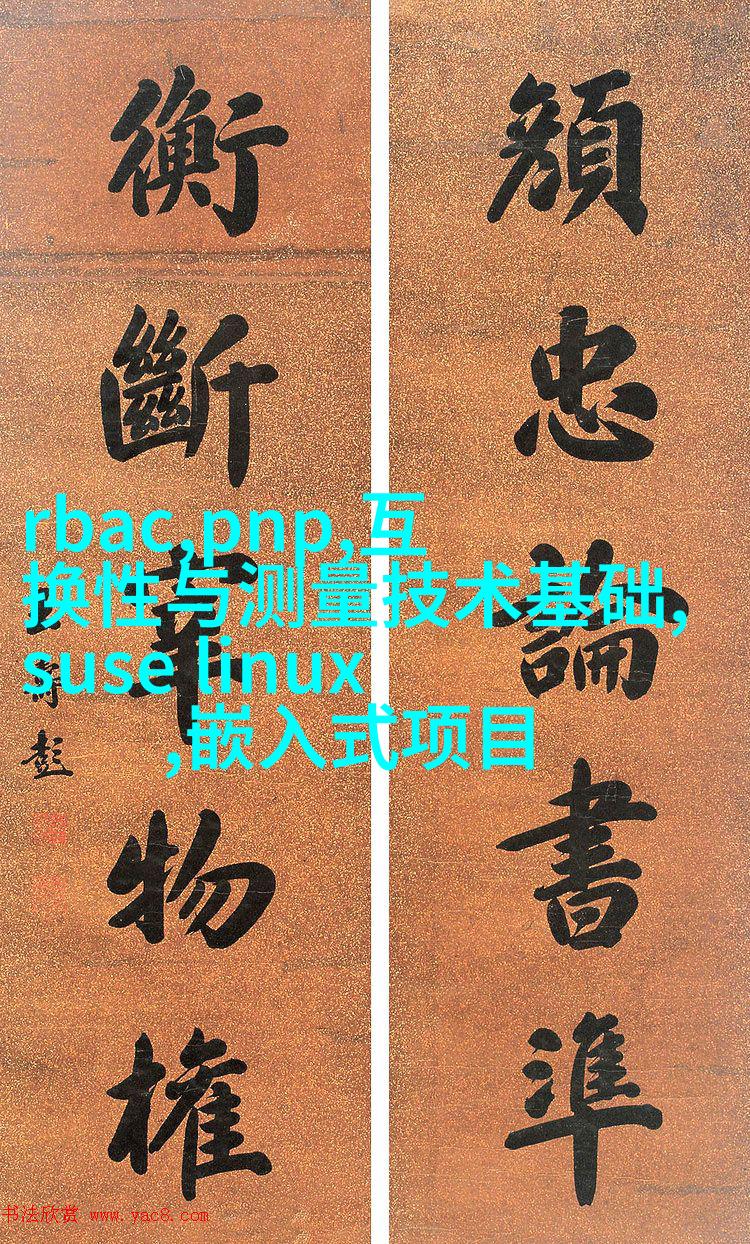 忠論書準
衡斷
物權
彭
rbac,pnp,互
换性与测量技术基础,
suse linux
,嵌入式项目
书法欣赏 www.yac8.com